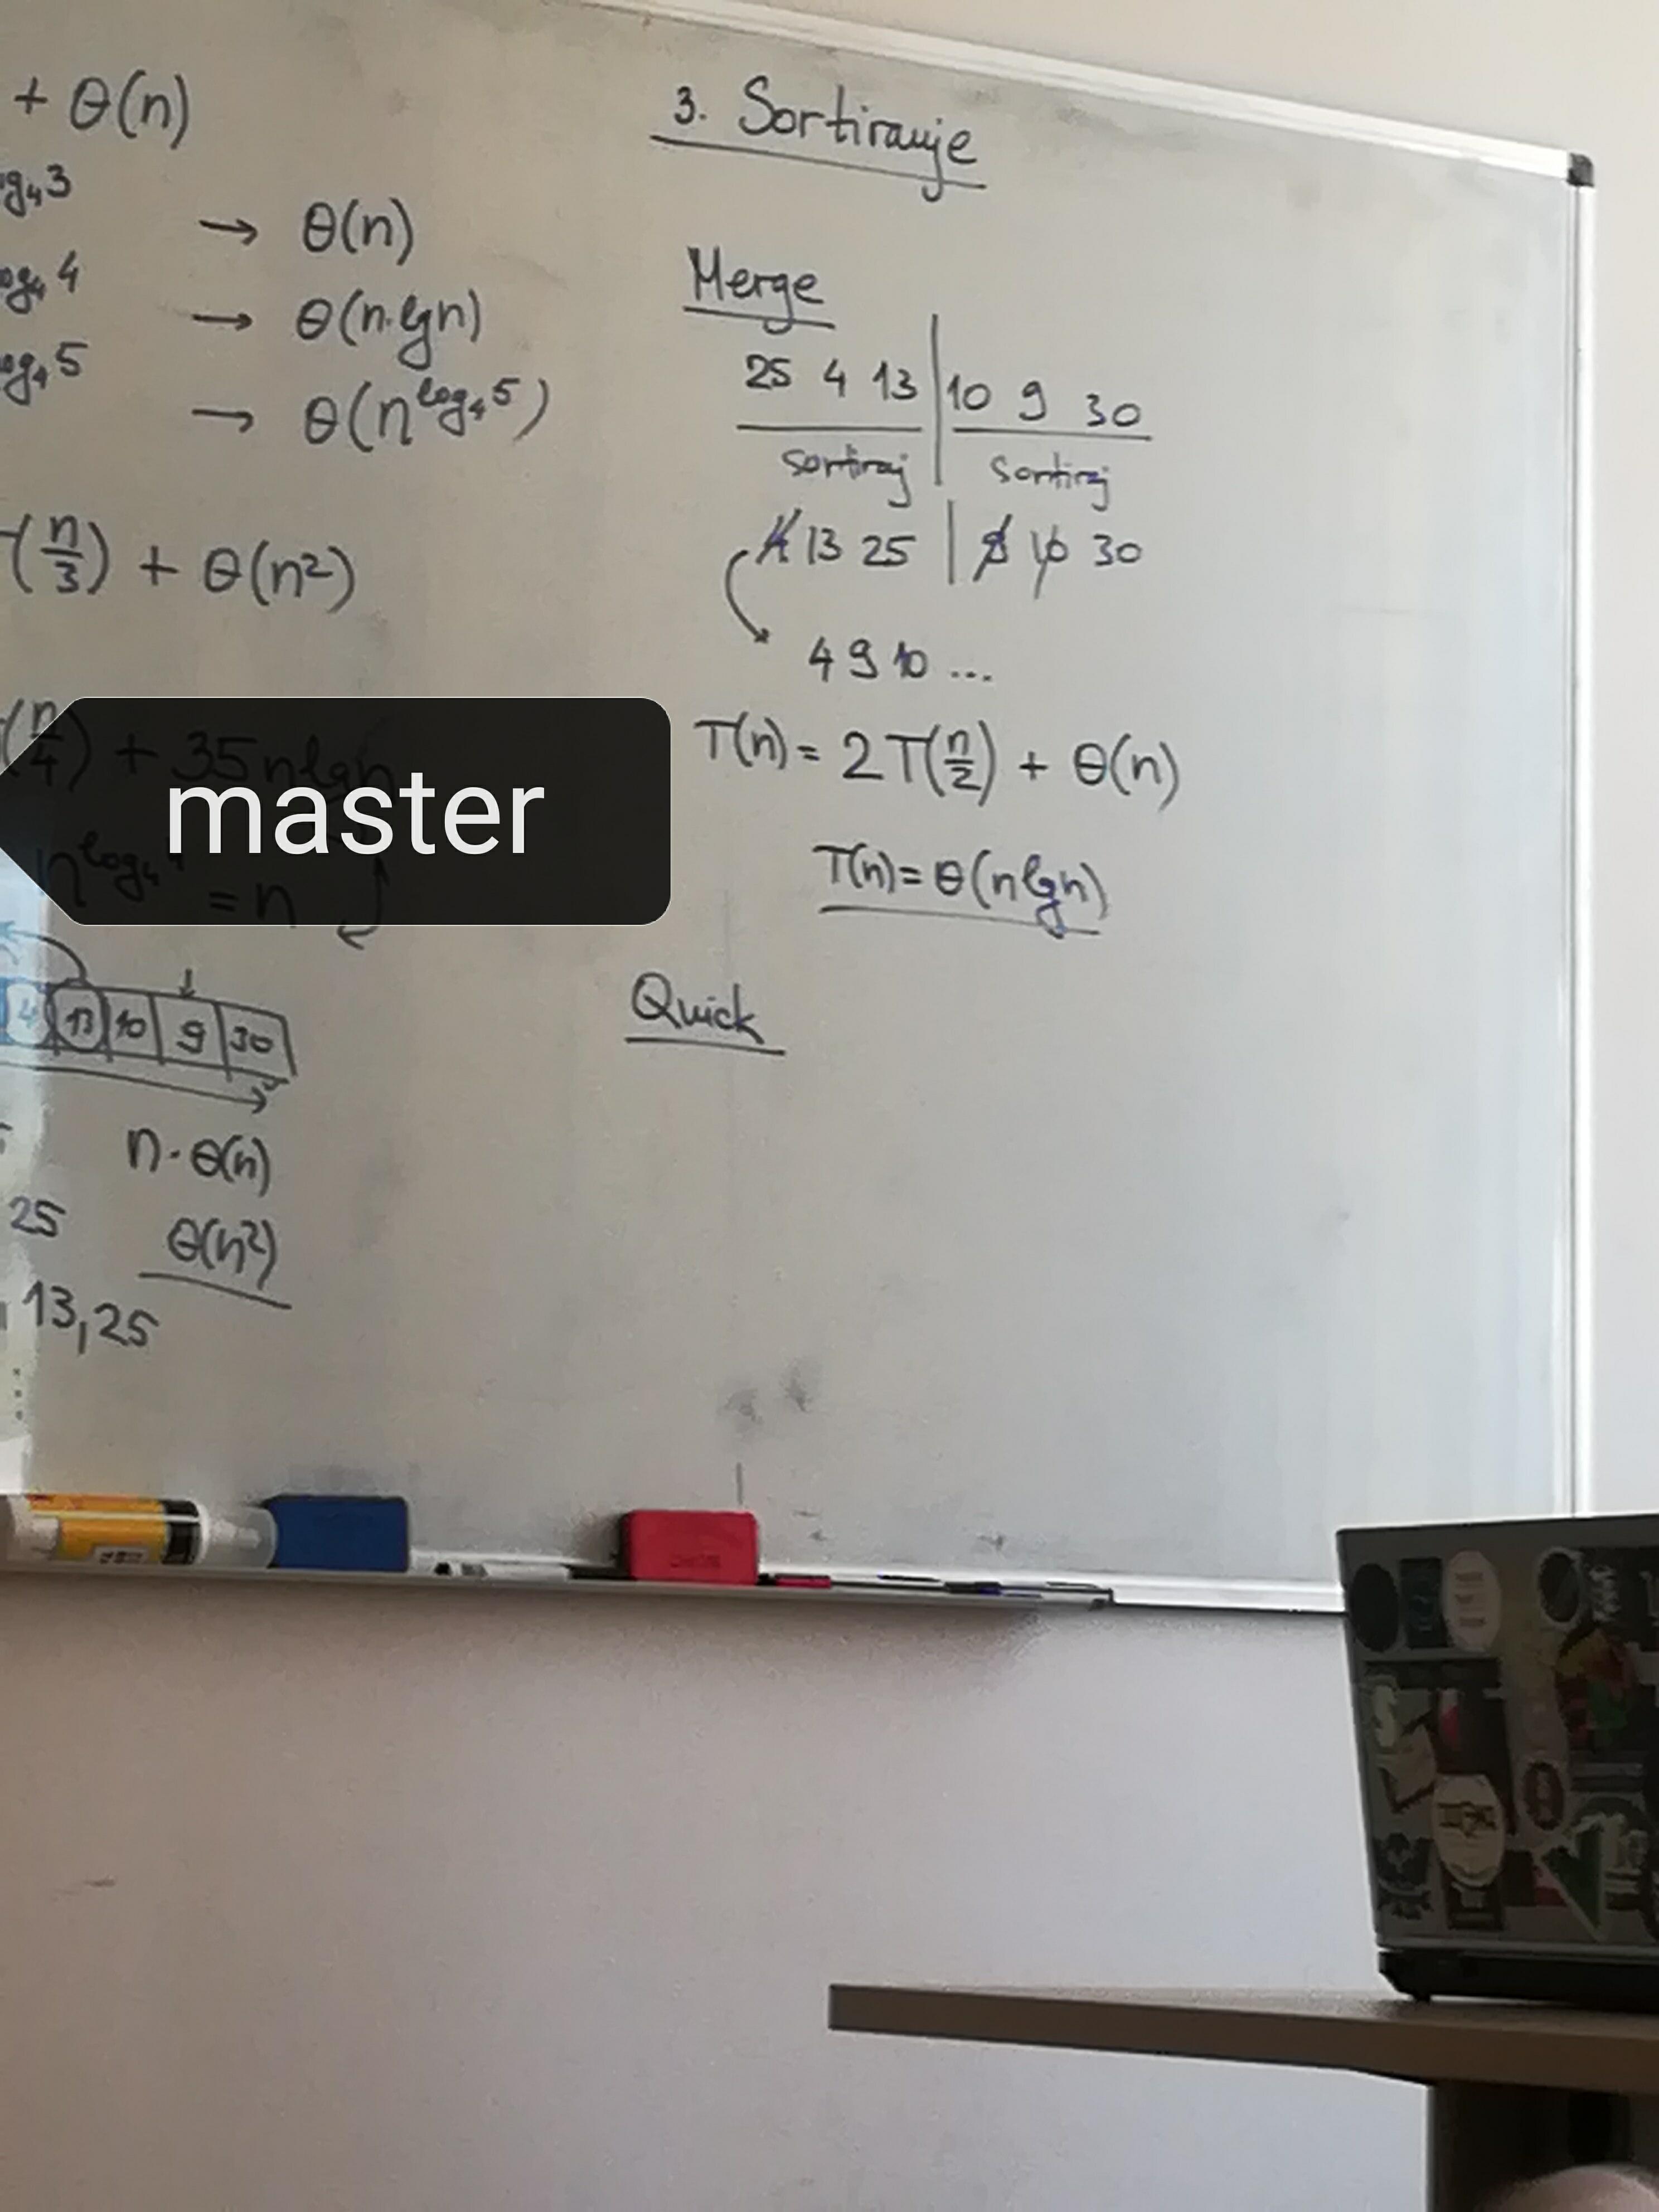 + θ(n)
log₄3 → θ(n)
log₄4 → θ(n·lgn)
log₄5 → θ(n^log₄5)
(n/3) + θ(n²)
(n/4) + 35nlgn
master
n^log₄4 = n
4 13 10 9 30
n·θ(n)
25 θ(n²)
13,25
3. Sortiranje
Merge
25 4 13 | 10 9 30
sortiraj sortiraj
4 13 25 | 9 10 30
4 9 10 ...
T(n) = 2T(n/2) + θ(n)
T(n) = θ(nlgn)
Quick